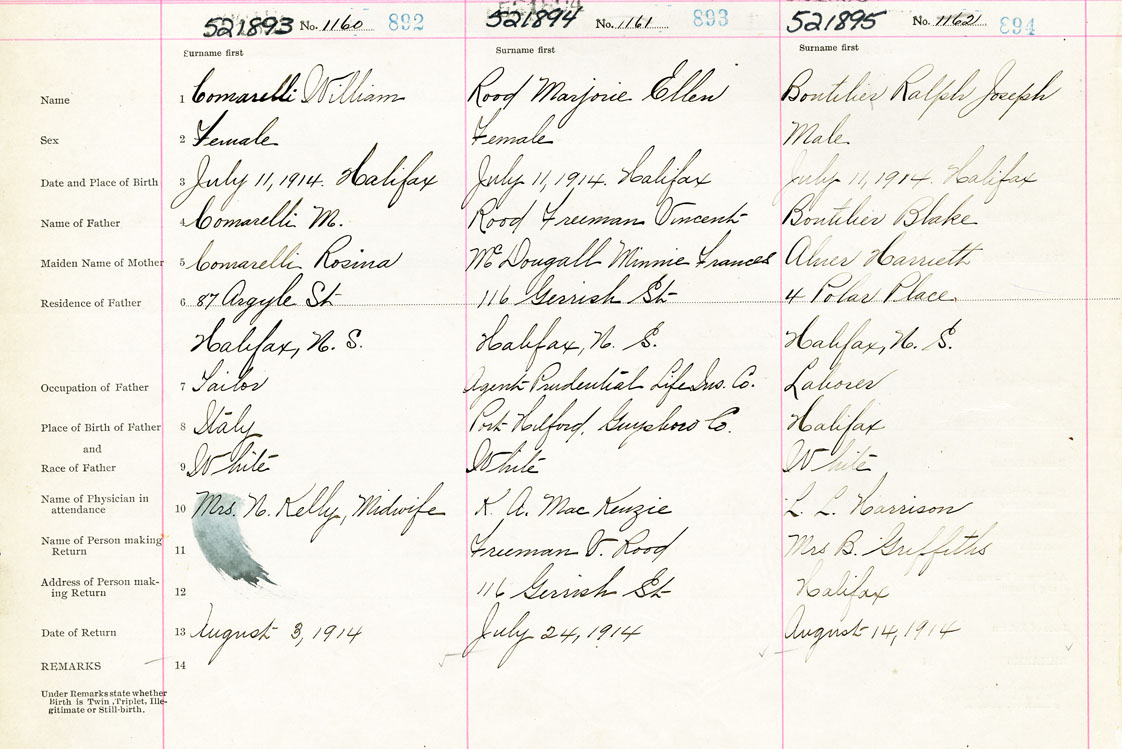 521893 No. 1160 892 521894 No. 1161 893 521895 No. 1162 894
Surname first Surname first Surname first
Name 1 Comarelli William Rood Marjorie Ellen Boutilier Ralph Joseph
Sex 2 Female Female Male
Date and Place of Birth 3 July 11, 1914. Halifax July 11, 1914. Halifax July 11, 1914. Halifax
Name of Father 4 Comarelli M. Rood Freeman Vincent Boutilier Blake
Maiden Name of Mother 5 Comarelli Rosina McDougall Minnie Frances Harrieth
Residence of Father 6 87 Argyle St 116 Gerrish St 4 Polar Place
Halifax, N. S. Halifax, N. S. Halifax, N. S.
Occupation of Father 7 Tailor Agent Prudential Life Ins. Co. Laborer
Place of Birth of Father 8 Italy Port Hilford, Guysboro Co. Halifax
and
Race of Father 9 White White White
Name of Physician in
attendance 10 Mrs. N. Kelly, Midwife K. A. MacKenzie L. L. Harrison
Name of Person making
Return 11 Freeman V. Rood Mrs B. Griffiths
Address of Person mak-
ing Return 12 116 Gerrish St Halifax
Date of Return 13 August 3, 1914 July 24, 1914 August 14, 1914
REMARKS 14
Under Remarks state whether
Birth is Twin, Triplet, Ille-
gitimate or Still-birth.